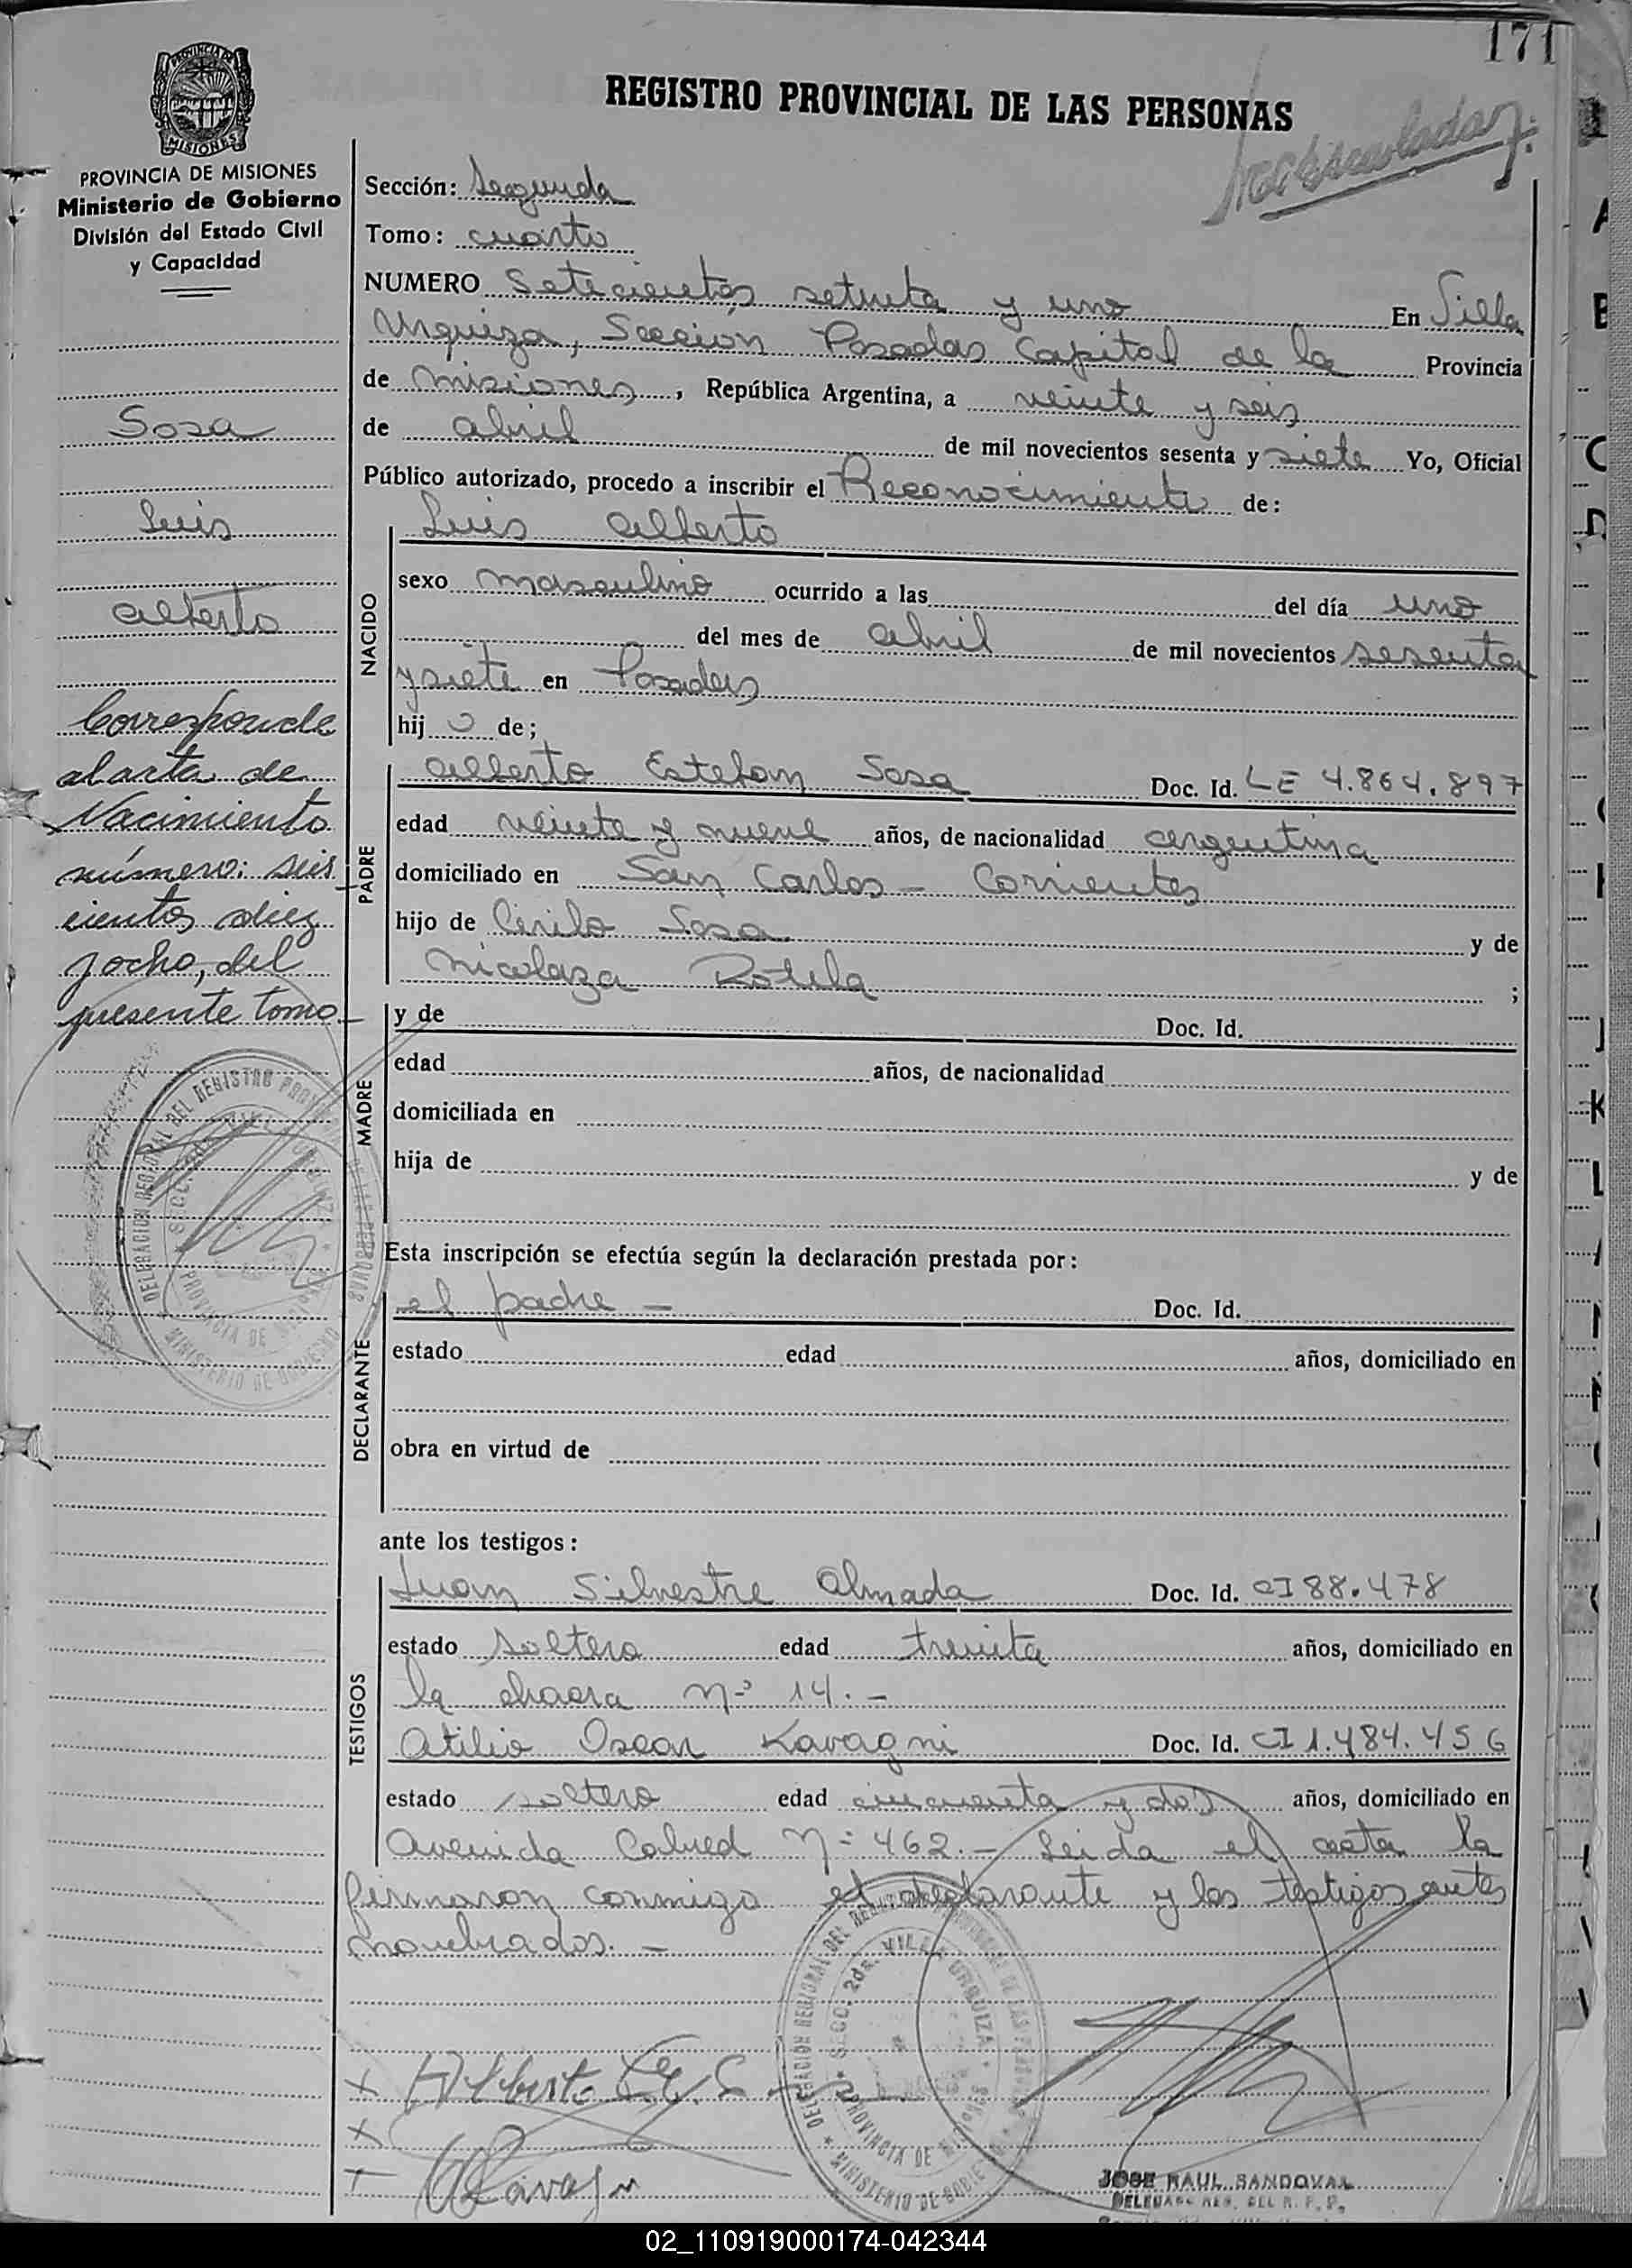 171
REGISTRO PROVINCIAL DE LAS PERSONAS
MISIONES
PROVINCIA DE MISIONES
Ministerio de Gobierno
División del Estado Civil
y Capacidad
Sosa
Luis
Alberto
Corresponde
al acta de
Nacimiento
número: seis
cientos diez
y ocho, del
presente tomo
Sección: Segunda
Tomo: cuarto
NUMERO Setecientos setenta y uno En Villa
Urquiza, Sección Posadas Capital de la Provincia
de Misiones, República Argentina, a veinte y seis
de abril de mil novecientos sesenta y siete Yo, Oficial
Público autorizado, procedo a inscribir el Reconocimiento de:
NACIDO
Luis Alberto
sexo masculino ocurrido a las del día uno
del mes de abril de mil novecientos sesenta
y siete en Posadas
hij o de;
PADRE
Alberto Esteban Sosa Doc. Id. LE 4.864.897
edad veinte y nueve años, de nacionalidad argentina
domiciliado en San Carlos - Corrientes
hijo de Cirilo Sosa y de
Nicolaza Rotela ;
MADRE
y de Doc. Id.
edad años, de nacionalidad
domiciliada en
hija de y de
Esta inscripción se efectúa según la declaración prestada por:
DECLARANTE
el padre - Doc. Id.
estado edad años, domiciliado en
obra en virtud de
ante los testigos:
TESTIGOS
Juan Silvestre Almada Doc. Id. CI 88.478
estado soltero edad treinta años, domiciliado en
la chacra Nº 14.-
Atilio Oscar Kavagni Doc. Id. CI 1.484.456
estado soltero edad cincuenta y dos años, domiciliado en
Avenida Cabred Nº 462.- Leida el acta la
firmaron conmigo el declarante y los testigos antes
nombrados.-
DELEGACION REGIONAL DEL REGISTRO PROVINCIAL DE LAS PERSONAS
SECC. 2da. VILLA URQUIZA
PROVINCIA DE MISIONES
MINISTERIO DE GOBIERNO
JOSE RAUL SANDOVAL
DELEGADO REG. DEL R. P. P.
02_110919000174-042344